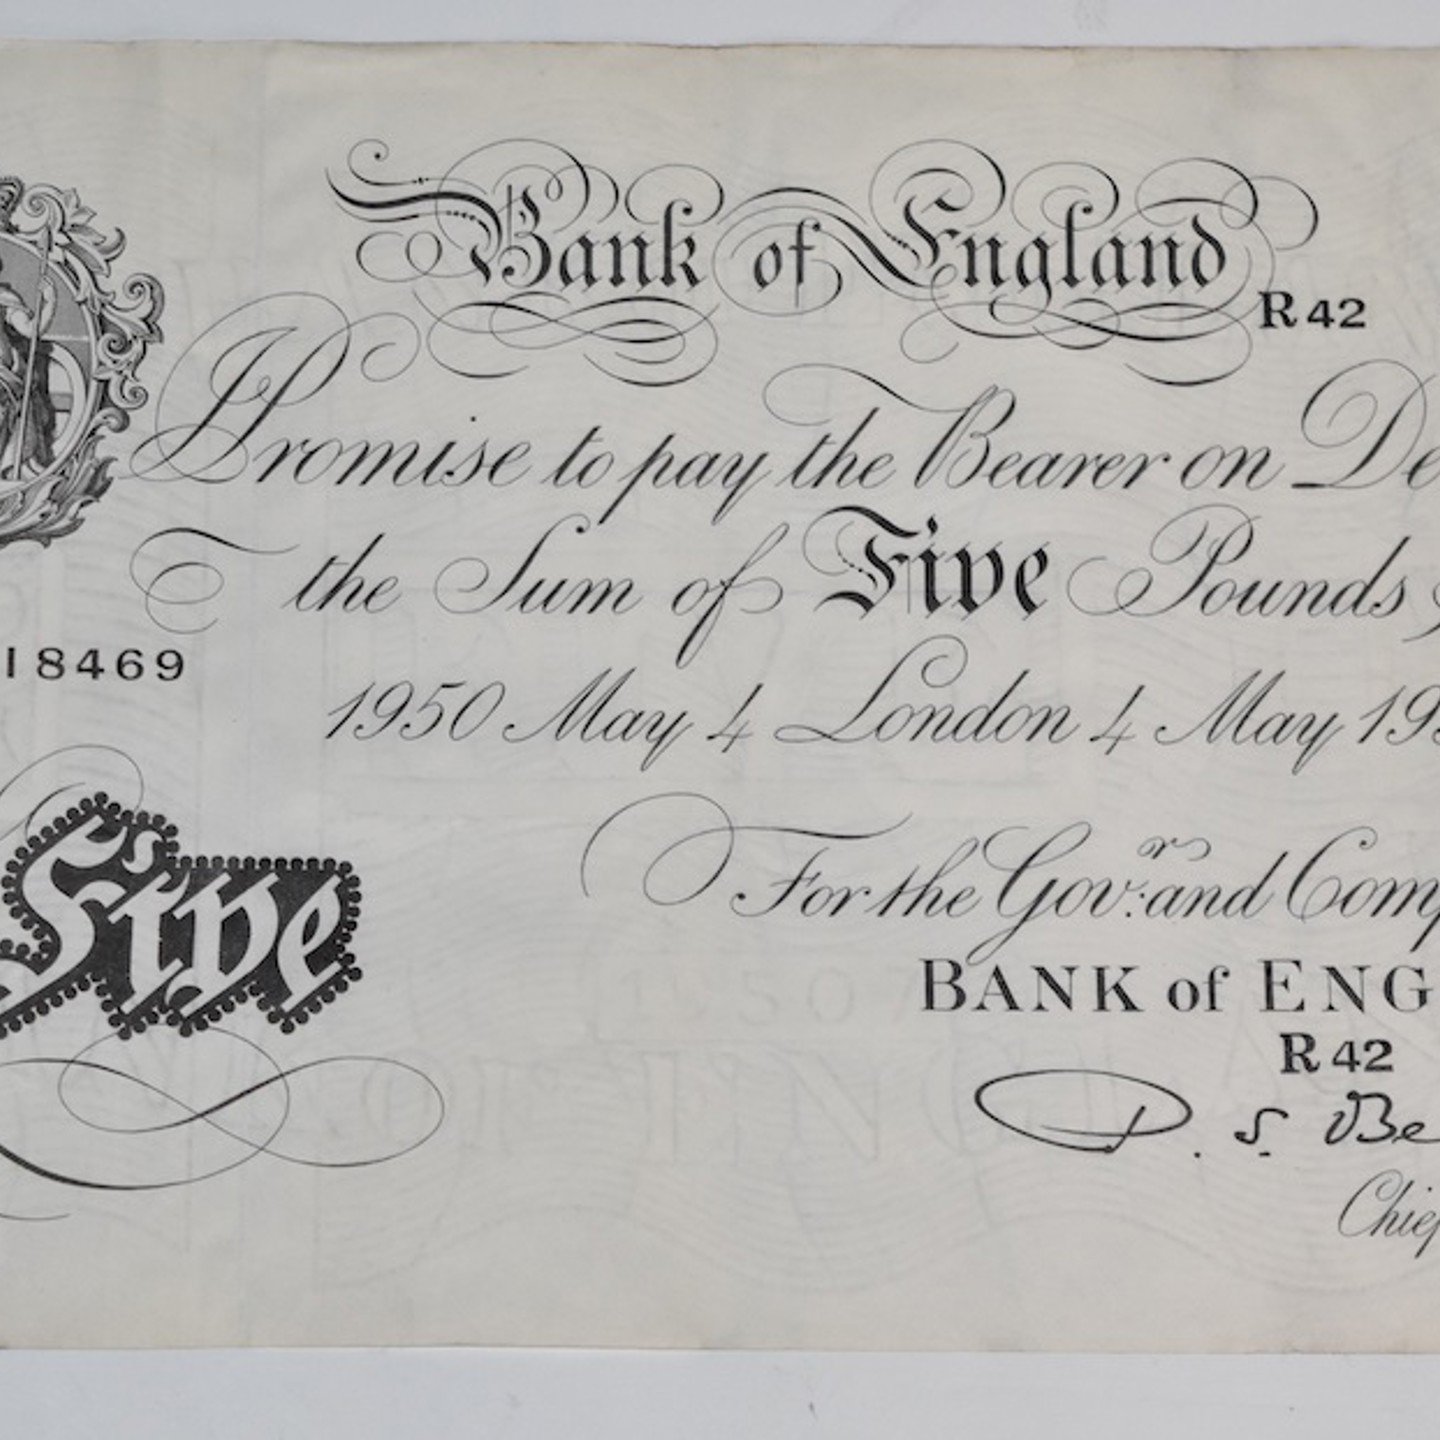 Bank of England
R42
I Promise to pay the Bearer on De
the Sum of Five Pounds
18469
1950 May 4 London 4 May 19
For the Gov.r and Comp
Five
BANK of ENG
R42
D. S. Be
Chief